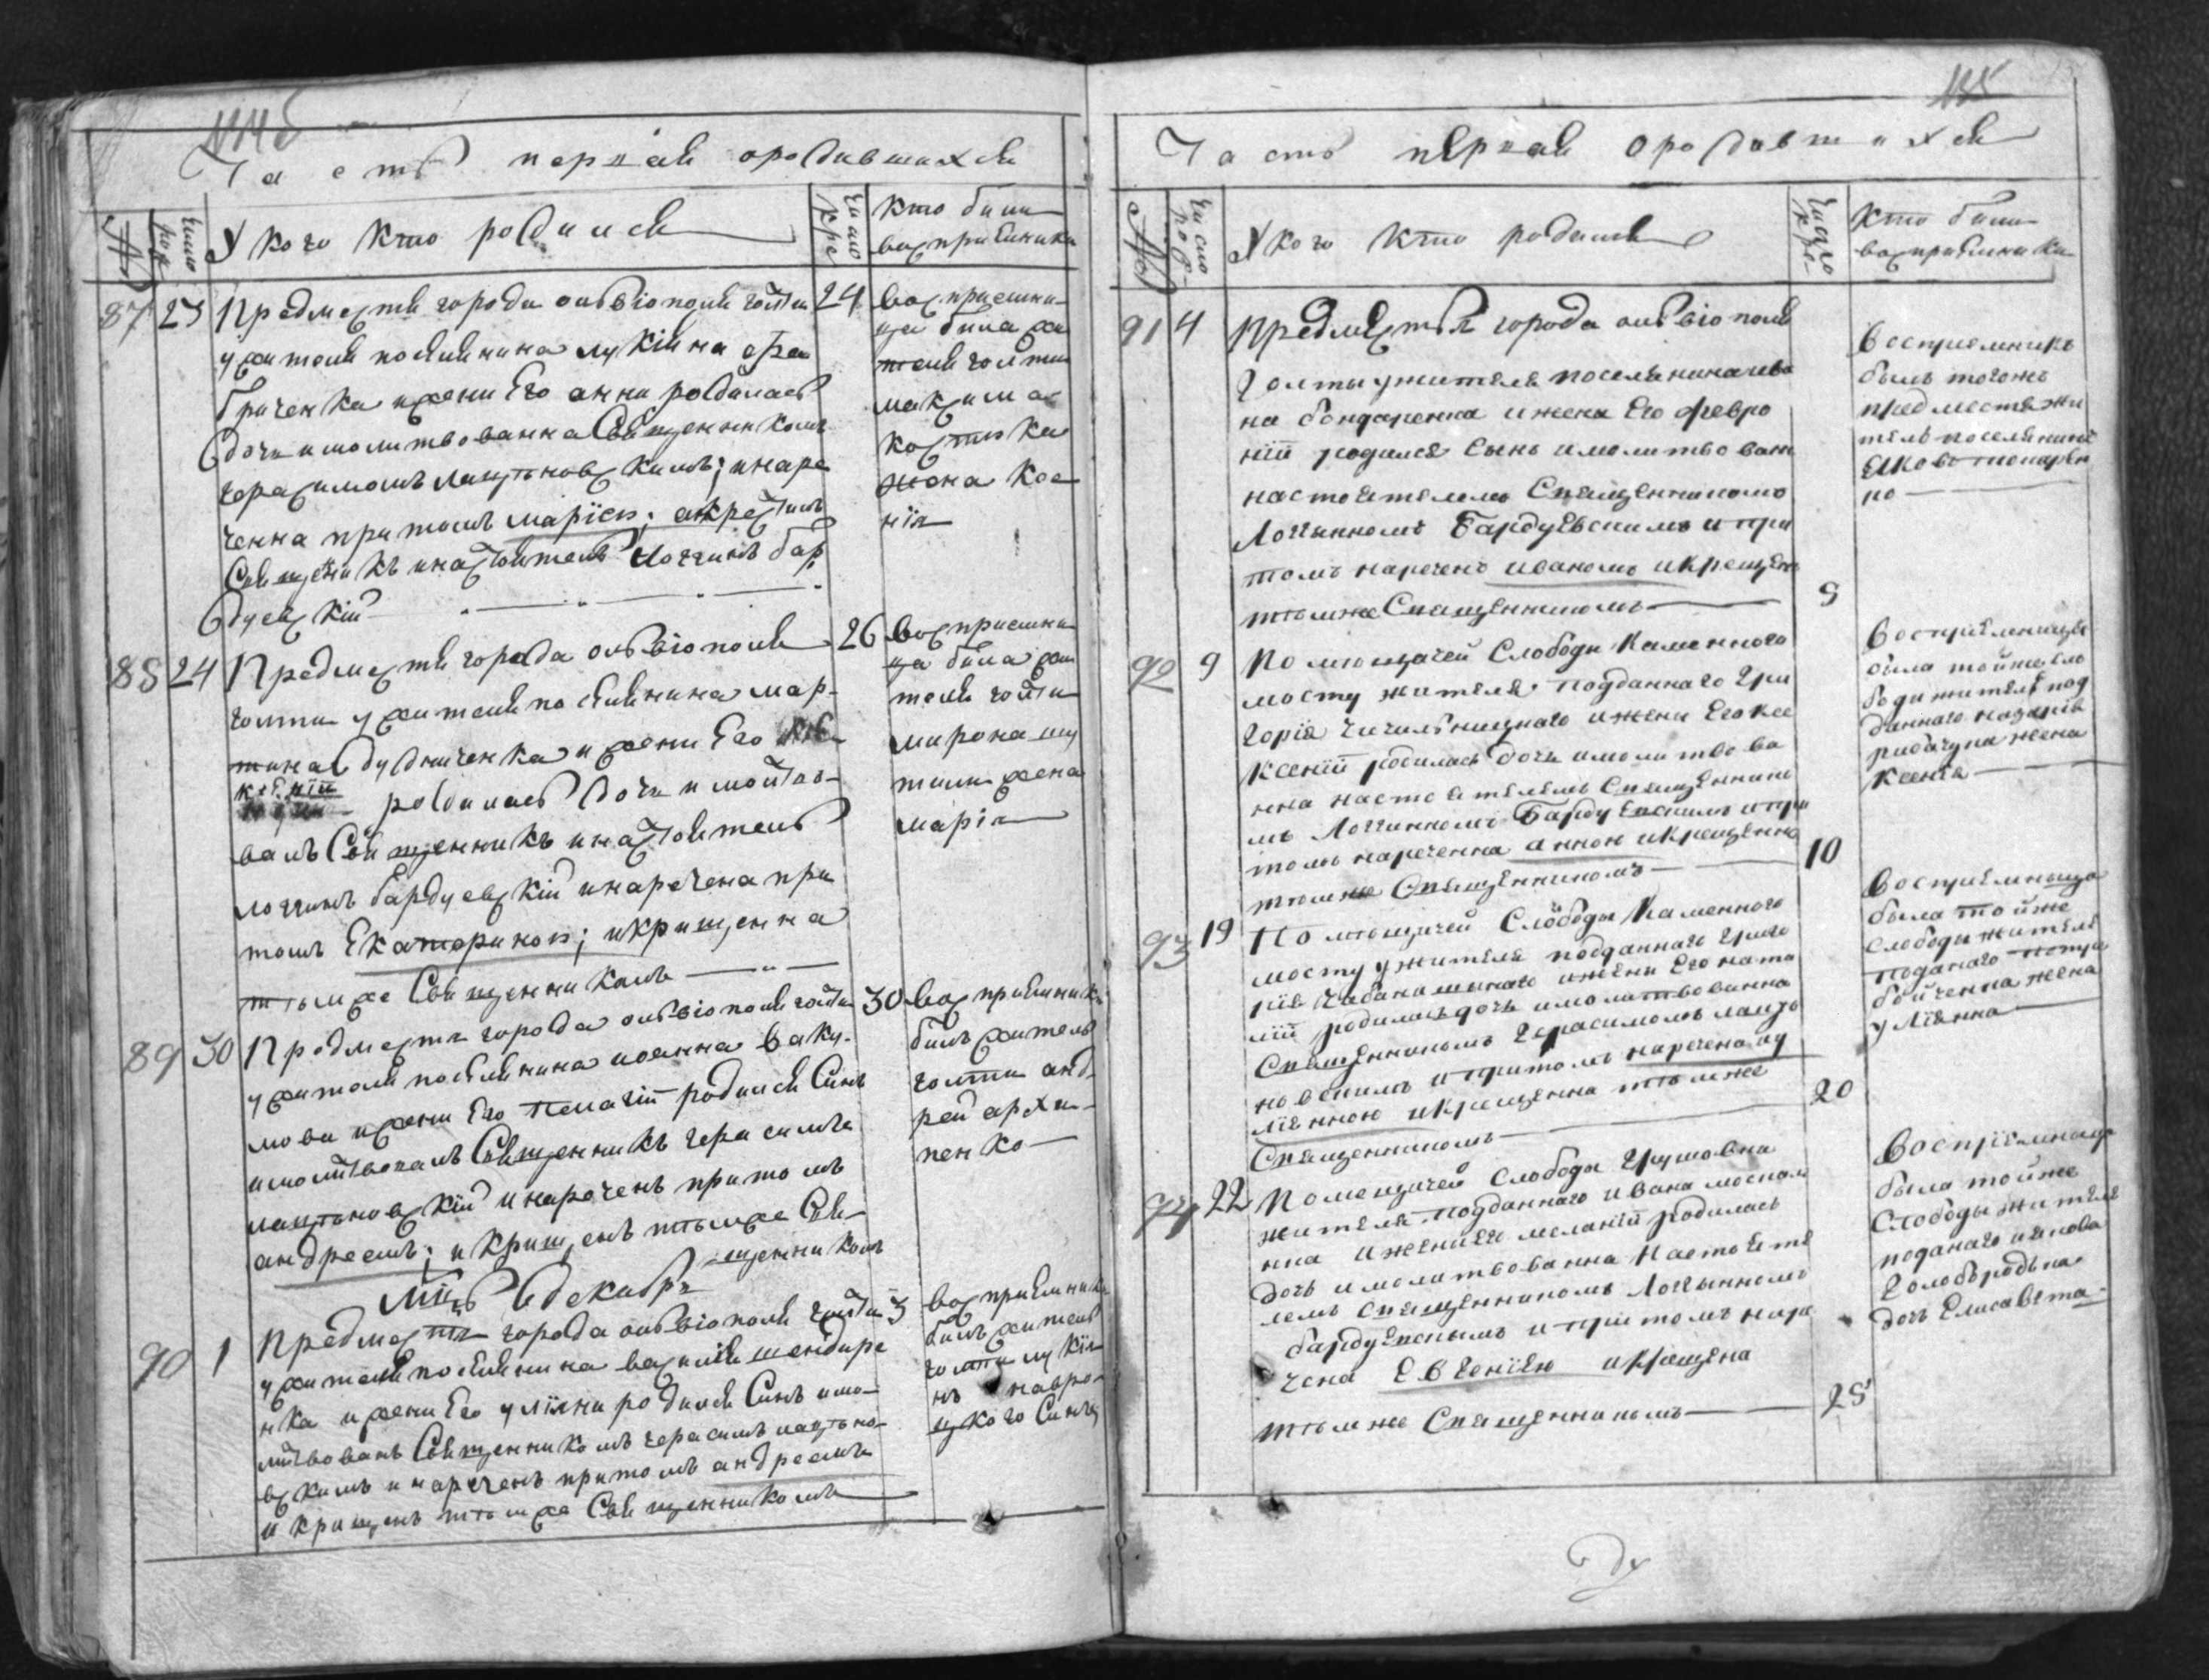 Часть первая о родившихся
№
Число рож
У кого кто родился
Число кре
кто були
восприемники
87 23
Предместя города ольвіополя голти
24
у жителя поселянина лукіяна
бриченка и жени Его анни родилась
дочь и молитвованна Священникомъ
герасимомъ лацьновскимъ; и наре
ченна притомъ маріею; а крестилъ
Священикъ и настоятель Логгинъ бар
дуевскій
восприемни
ца била жи
теля голти
максима
костюка
жена ксе
нія
88 24
Предместя города ольвіополя
26
голти у жителя поселянина мар
тина дудниченка и жени Его
ксеніи родилась дочь и молтво
валъ Священникъ и настоятель
логгинъ бардуевскій и наречена при
томъ Екатериною; и крищенна
тъмже Священникомъ
восприемни
ца била жи
теля голти
мирона
жена
марія
89 30
Предместя города ольвіополя голти
30
у жителя поселянина иоанна ваку
мови и жени Его пелагіи родился Синъ
и молтвовалъ Священникъ герасимъ
лацьновскій и нареченъ притомъ
андреемъ; и крищенъ тъмже Свя
щенникомъ
восприемникъ
билъ житель
голти анд
рей архи
пенко
Мцъ декабрь
90 1
Предместя города ольвіополя голти
3
у жителя поселянина василія шендире
нка и жени Его уліяни родился Синъ и мо
литвованъ Священникомъ герасимъ лацьно
вскимъ и нареченъ притомъ андреемъ
и крищенъ тъмже Священникомъ
восприемникъ
билъ житель
голти лукія
нъ
цкого Синъ
135
Часть первая о родившихся
№
Число рож
У кого кто родился
Число кре
кто били
восприемники
91 4
Предместья города ольвіополя
Голты у жителя поселянина
на бондаренка и жена Его февро
ніи родился сынъ и молитвован
настоятелемъ Священникомъ
Логгинномъ Бардуевскимъ и при
томъ нареченъ иваномъ и крещенъ
тъмже Священникомъ
5
Восприемникъ
былъ тогожъ
предместя жи
тель поселянинъ
но
92 9
Помющичей Слободы Каменного
мосту жителя подданнаго Гри
горія Чичильницкаго и жени Его ксе
ксеніи родилась дочь и молитвова
нна настоятелемъ Священнико
мъ Логгинномъ Бардуевскимъ и при
томъ нареченна анною и крещенна
тъмже Священникомъ
10
Восприемница
была тойже сло
боди жителя под
даннаго назарія
рибачука жена
Ксенія
93 19
Помющичей Слободы Каменного
мосту у жителя подданнаго Григо
рія Чабана и жени Его ната
ліи родилась дочь и молитвованна
Священникомъ Герасимомъ лацьо
новскимъ и притомъ наречена іу
ліянною и крещенна тъмже
Священникомъ
20
Восприемница
была тойже
слободы жителя
поданаго петра
бойченка жена
Уліянна
94 22
Помещичей Слободы Грушовка
жителя подданнаго ивана москале
нка и жени Его меланіи родилась
дочь и молитвованна настояте
лемъ Священникомъ Логгинномъ
бардуевскымъ и притомъ наре
чена Евгеніею и крещена
тъмже Священникомъ
25
Восприемница
была тойже
Слободы жителя
поданаго иякова
Голобородька
дочь Елисавета